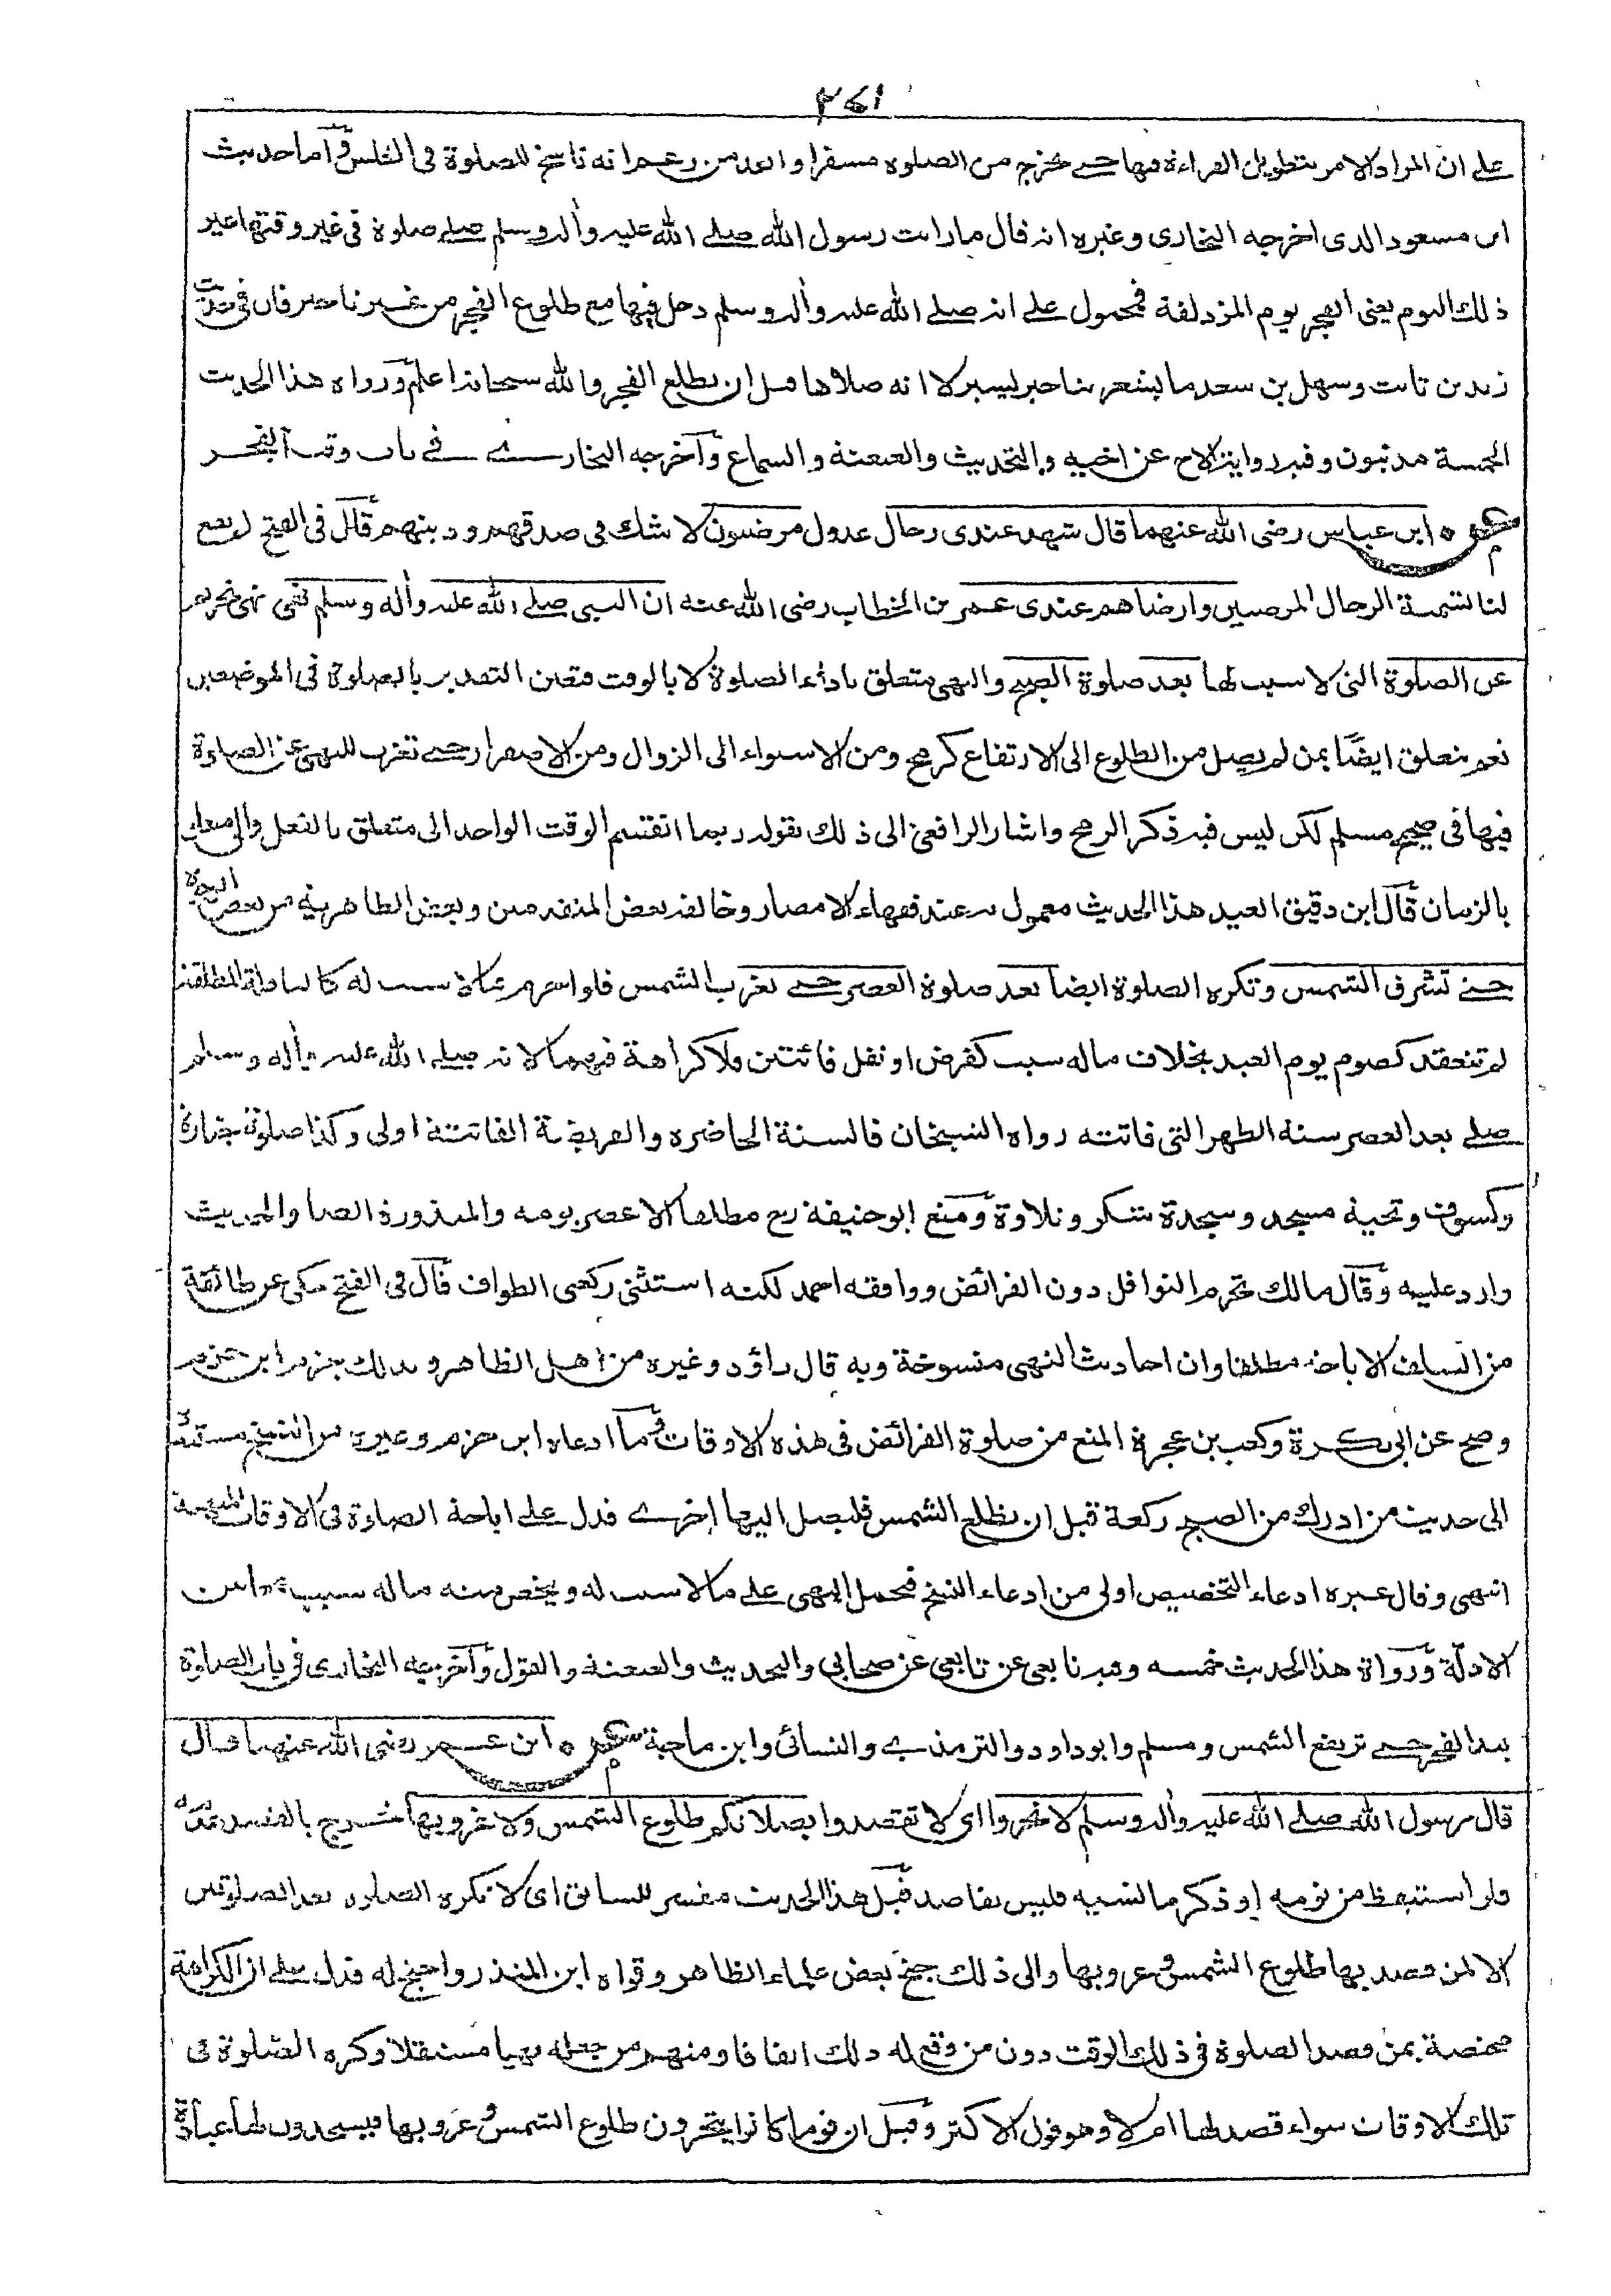 ٣٦١
على ان المراد الامر بتطويل القراءة فيها حتى يخرج من الصلوة مسفرا وابعد من زعم انه ناسخ للصلوة فى الغلس وآما حديث
ابن مسعود الذى اخرجه البخارى وغيره انه قال ما رايت رسول الله صلى الله عليه وأله وسلم صلى صلوة فى غير وقتها غير
ذلك اليوم يعنى الفجر يوم المزدلفة فمحمول على انه صلى الله عليه وأله وسلم دخل فيها مع طلوع الفجر من غير تاخير فان فى حديث
زيد بن ثابت وسهل بن سعد ما يشعر بتاخير يسير لا انه صلاها قبل ان يطلع الفجر والله سبحانه اعلم ورواه هذا الحديث
الخمسة مدنيون وفيه رواية الاخ عن اخيه والتحديث والعنعنة والسماع وآخرجه البخارى فى باب وقت الفجر
عن ابن عباس رضى الله عنهما قال شهد عندى رجال عدول مرضيون لا شك فى صدقهم ودينهم قال فى الفتح لم يقع
لنا تسمية الرجال المرضيين وارضاهم عندى عمر بن الخطاب رضى الله عنه ان النبى صلى الله عليه وأله وسلم نهى نهى تحريم
عن الصلوة التى لا سبب لها بعد صلوة الصبح والنهى متعلق باداء الصلوة لا بالوقت فتعين التقدير بالصلوة فى الموضعين
نعم يتعلق ايضًا بمن لم يصل من الطلوع الى الارتفاع كرمح ومن الاستواء الى الزوال ومن الاصفرار حتى تغرب للنهى عن الصلوة
فيها فى صحيح مسلم لكن ليس فيه ذكر الرمح واشار الرافعى الى ذلك بقوله ربما انقسم الوقت الواحد الى متعلق بالفعل والى متعلق
بالزمان قآل ابن دقيق العيد هذا الحديث معمول به عند فقهاء الامصار وخالفه بعض المتقدمين وبعض الظاهرية من بعض الوجوه
حتى تشرق الشمس وتكره الصلوة ايضا بعد صلوة العصر حتى تغرب الشمس فلو احرم بما لا سبب له كالنافلة المطلقة
لم تنعقد كصوم يوم العيد بخلاف ماله سبب كفرض او نفل فائتتين فلا كراهة فيهما لانه صلى الله عليه وأله وسلم
صلى بعد العصر سنة الظهر التى فاتته رواه الشيخان فالسنة الحاضره والفريضة الفائتة اولى وكذا صلوة جنازة
وكسوف وتحية مسجد وسجدة شكر وتلاوة ومنع ابو حنيفة رح مطلقا الا عصر يومه والمنذورة ايضا والحديث
وارد عليه وقآل مالك تحرم النوافل دون الفرائض ووافقه احمد لكنه استثنى ركعتى الطواف قآل فى الفتح حكى عن طائفة
من السلف الاباحة مطلقا وان احاديث النهى منسوخة وبه قال داؤد وغيره من اهل الظاهر وبذلك جزم ابن حزم
وصح عن ابى بكرة وكعب بن عجرة المنع من صلوة الفرائض فى هذه الاوقات ومآ ادعاه ابن حزم وغيره من النسخ مستندًا
الى حديث من ادرك من الصبح ركعة قبل ان تطلع الشمس فليصل اليها اخرى فدل على اباحة الصلوة فى الاوقات المنهية
انتهى وقال غيره ادعاء التخصيص اولى من ادعاء النسخ فيحمل النهى على ما لا سبب له ويخص منه ما له سبب جمعا بين
الادلّة ورواة هذا الحديث خمسه وفيه تابعى عن تابعى عن صحابى والتحديث والعنعنة والقول وآخرجه البخارى فى باب الصلوة
بعد الفجر حتى ترتفع الشمس ومسلم وابو داود والترمذى والنسائى وابن ماجة عن ابن عمر رضى الله عنهما قال
قال رسول الله صلى الله عليه وأله وسلم لا تحروا اى لا تقصدوا بصلاتكم طلوع الشمس ولا غروبها خرج بالقصد عدمه
فلو استيقظ من نومه او ذكر ما نسيه فليس بقاصد قيل هذا الحديث مفسر للسابق اى لا تكره الصلوه بعد الصلوتين
الا لمن قصد بها طلوع الشمس وغروبها والى ذلك جنح بعض علماء الظاهر وقواه ابن المنذر واحتج له فدل على ان الكراهة
مختصة بمن قصد الصلوة فى ذلك الوقت دون من وقع له ذلك اتفاقا ومنهم من جعله نهيا مستقلا وكره الصّلوة فى
تلك الاوقات سواء قصد لها ام لا وهو قول الاكثر وقيل ان قوما كانوا يتحرون طلوع الشمس وغروبها فيسجدون لها عبادة